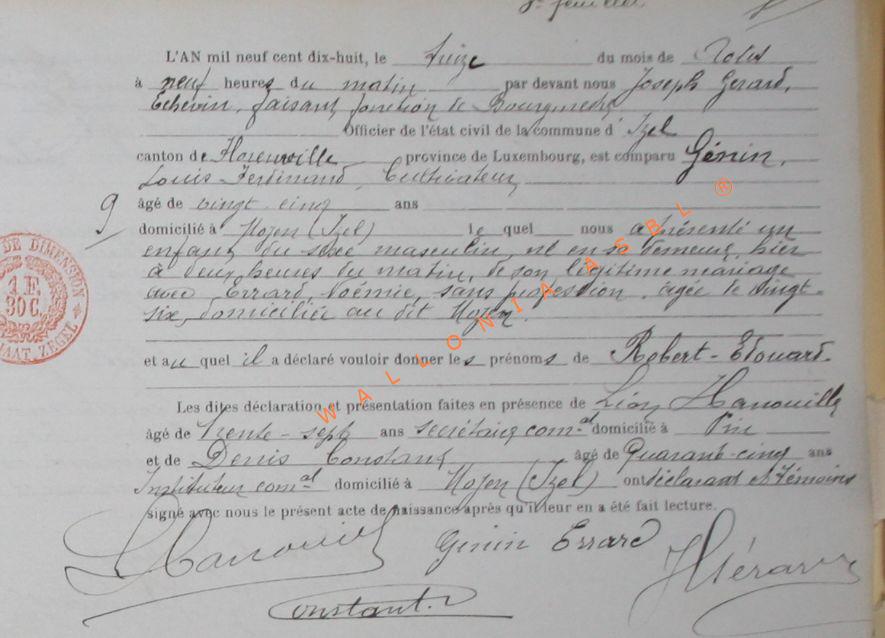 L'AN mil neuf cent dix-huit, le treize du mois de
à neuf heures du matin par devant nous Joseph Gérard,
Echevin, faisant fonction de Bourgmestre
Officier de l'état civil de la commune d' Izel
canton de Florenville province de Luxembourg, est comparu Génin,
Louis-Ferdinand, Cultivateur
9 âgé de vingt cinq ans
domicilié à Moyen (Izel) le quel nous a présenté un
enfant du sexe masculin, né en sa demeure, hier
à deux heures du matin, de son légitime mariage
avec Errard Noémie, sans profession, agée de vingt-
six, domiciliée au dit Moyen.
et au quel il a déclaré vouloir donner les prénoms de Robert-Edouard.
Les dites déclaration et présentation faites en présence de Léon Hanouille
âgé de Trente-sept ans secrétaire com.al domicilié à Pin
et de Denis Constant âgé de Quarante-cinq ans
Instituteur com.al domicilié à Moyen (Izel) ont déclarant et témoins
signé avec nous le présent acte de naissance après qu'il leur en a été fait lecture.
L Hanouille Génin Errard J Gérard
Constant.
DE DIMENSION
1 F.
30 C.
ZEGEL
WALLONIA ASBL ®